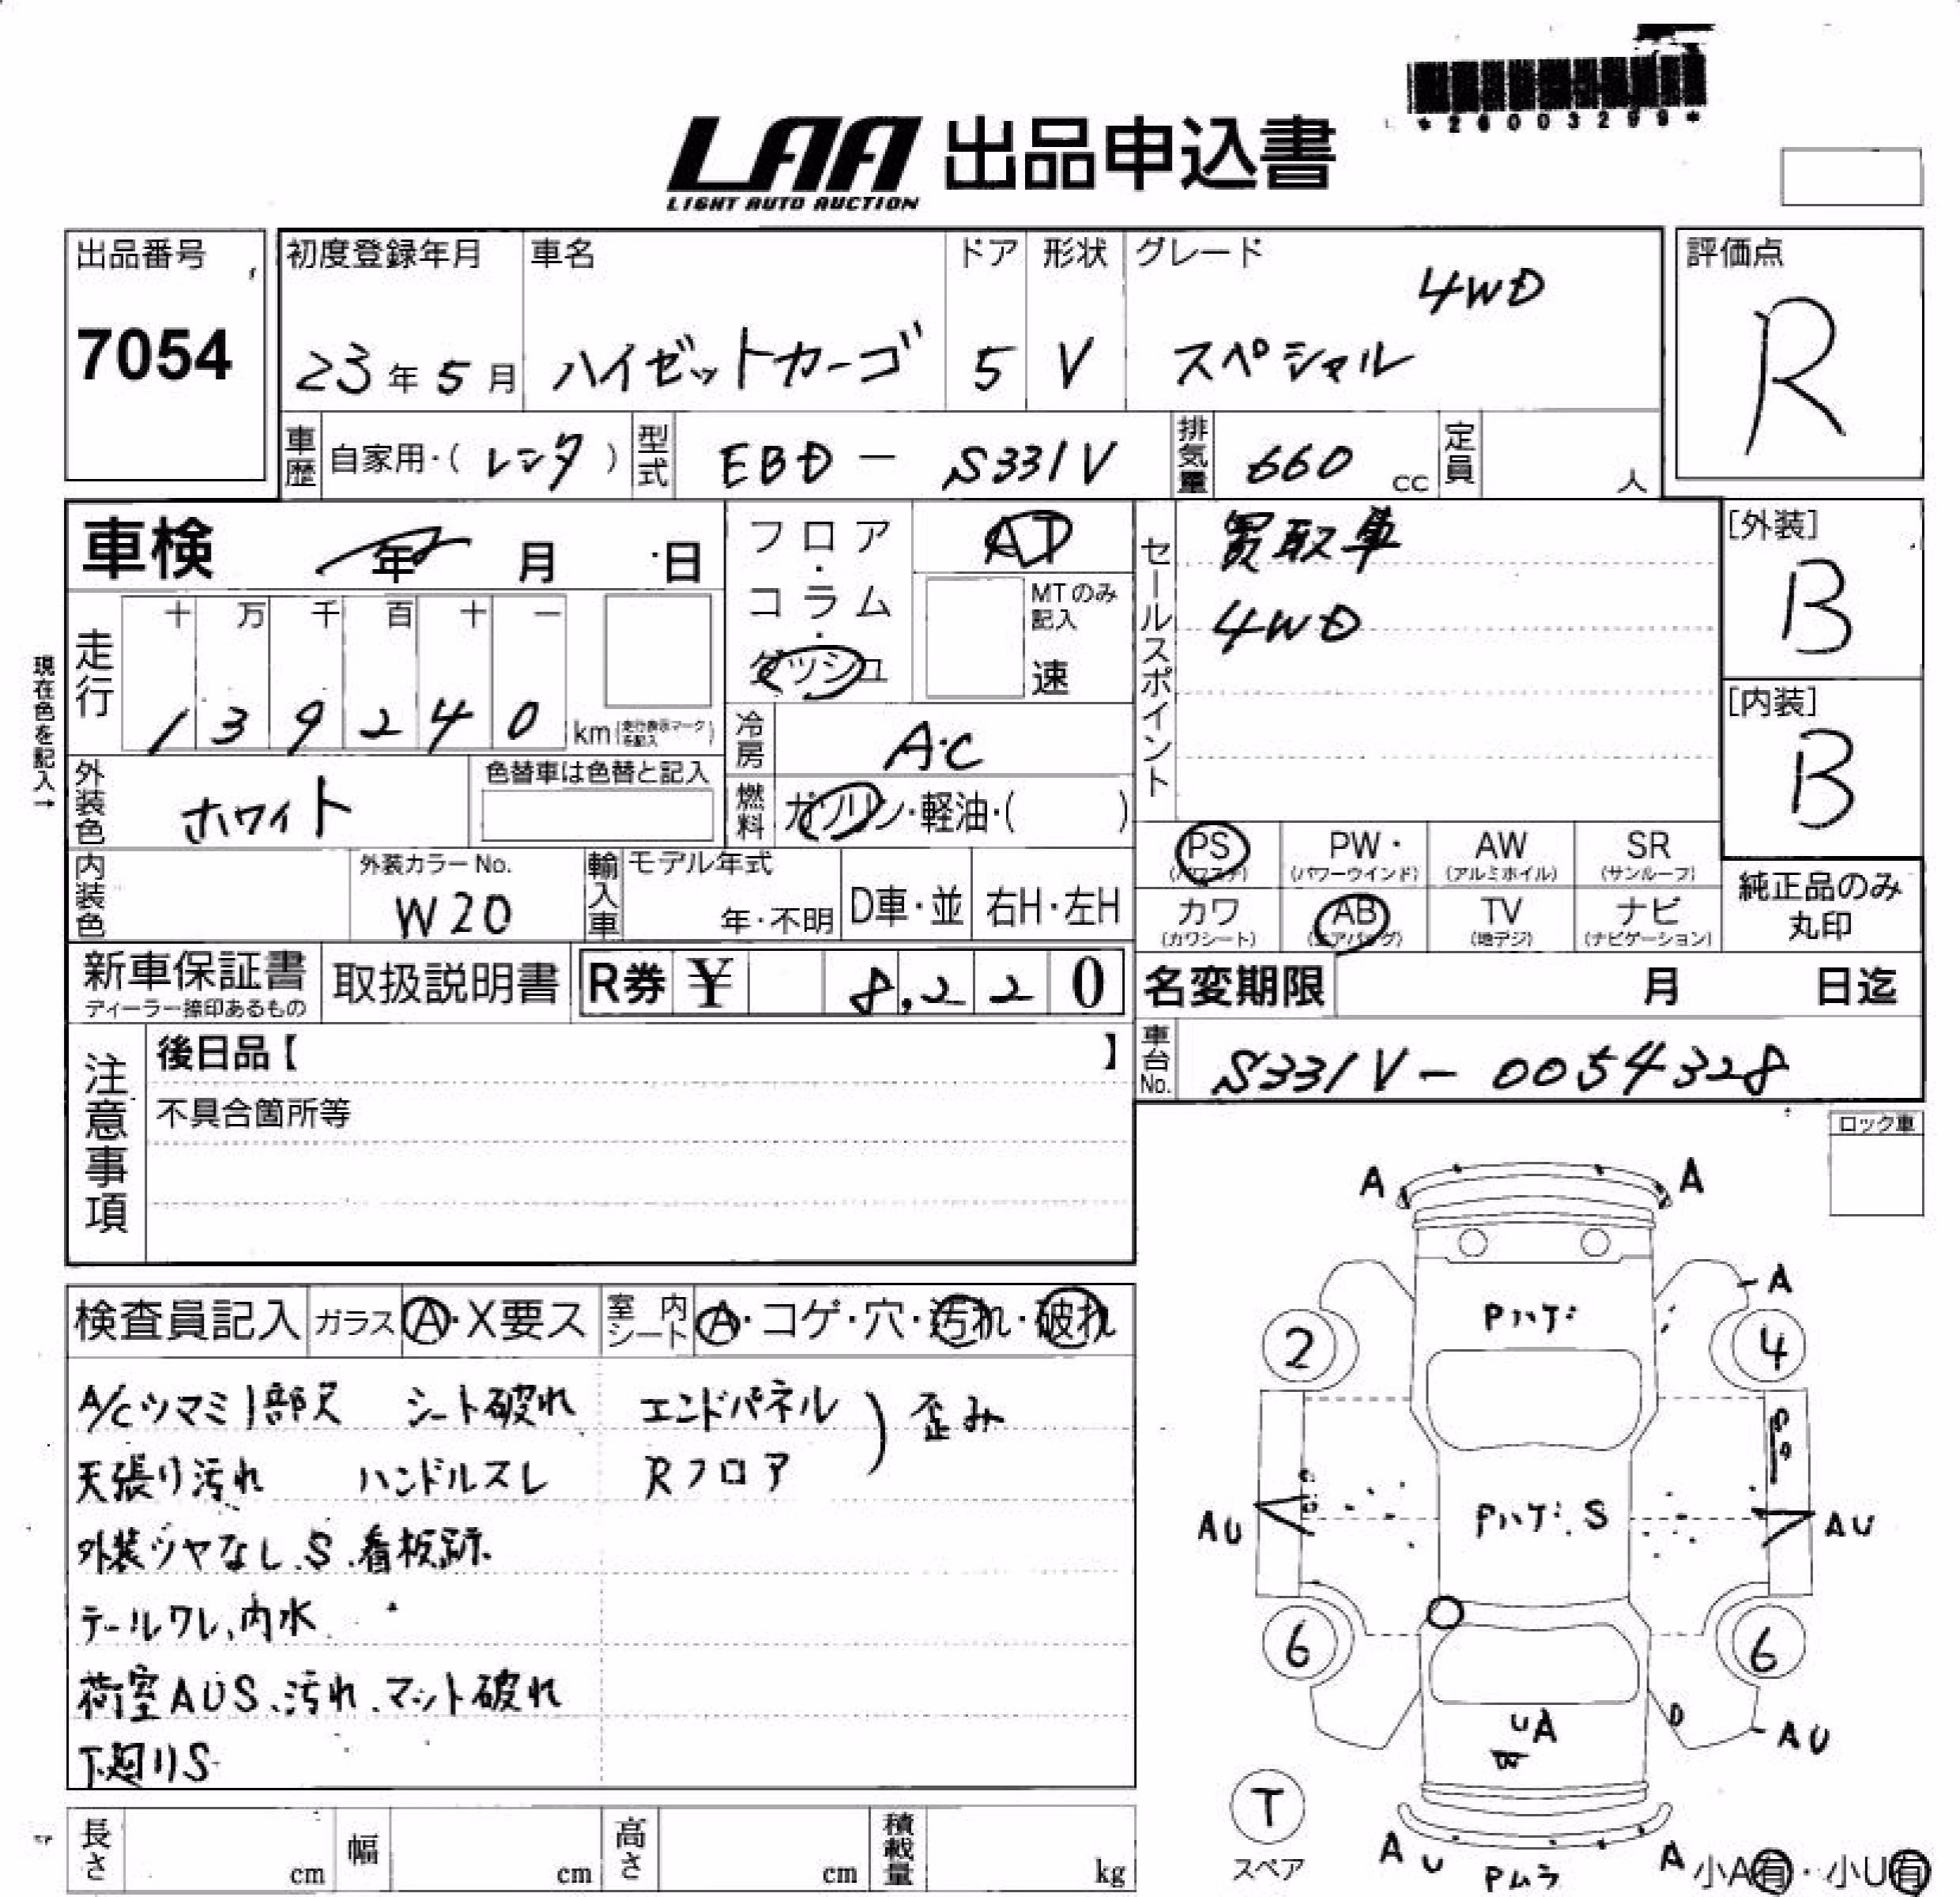 *26003299*
LAA 出品申込書
LIGHT AUTO AUCTION
出品番号
7054
初度登録年月
23年5月
車名
ハイゼットカーゴ
ドア
5
形状
V
グレード
4WD
スペシャル
評価点
R
車歴
自家用・( レンタ )
型式
EBD - S331V
排気量
660 cc
定員
人
車検 年 月 日
フロア・コラム・ダッシュ
AT
MTのみ記入
速
セールスポイント
買取車
4WD
[外装]
B
[内装]
B
現在色を記入→
走行
十 万 千 百 十 一
1 3 9 2 4 0 km (走行表示マークを記入)
冷房
A・C
燃料
ガソリン・軽油・( )
外装色
ホワイト
色替車は色替と記入
内装色
外装カラーNo.
W20
輸入車
モデル年式
年・不明
D車・並
右H・左H
PS
(パワステ)
PW・
(パワーウインド)
AW
(アルミホイル)
SR
(サンルーフ)
カワ
(カワシート)
AB
(エアバッグ)
TV
(地デジ)
ナビ
(ナビゲーション)
純正品のみ
丸印
新車保証書
ディーラー捺印あるもの
取扱説明書
R券 ¥ 8,220
名変期限 月 日迄
車台No.
S331V-0054328
注意事項
後日品【 】
不具合箇所等
ロック車
検査員記入
ガラス
A・X要ス
室内シート
A・コゲ・穴・汚れ・破れ
A/Cツマミ1部欠 シート破れ エンドパネル ) 歪み
天張り汚れ ハンドルスレ Rフロア
外装ツヤなし、S、看板跡
テールワレ、内水
荷室AUS、汚れ、マット破れ
下廻りS
A A
A
Pハゲ
2 4
Pハゲ、S
AU AU
6 6
UA
D
AU
T
スペア
A U Pムラ A
小A有・小U有
長さ cm
幅 cm
高さ cm
積載量 kg